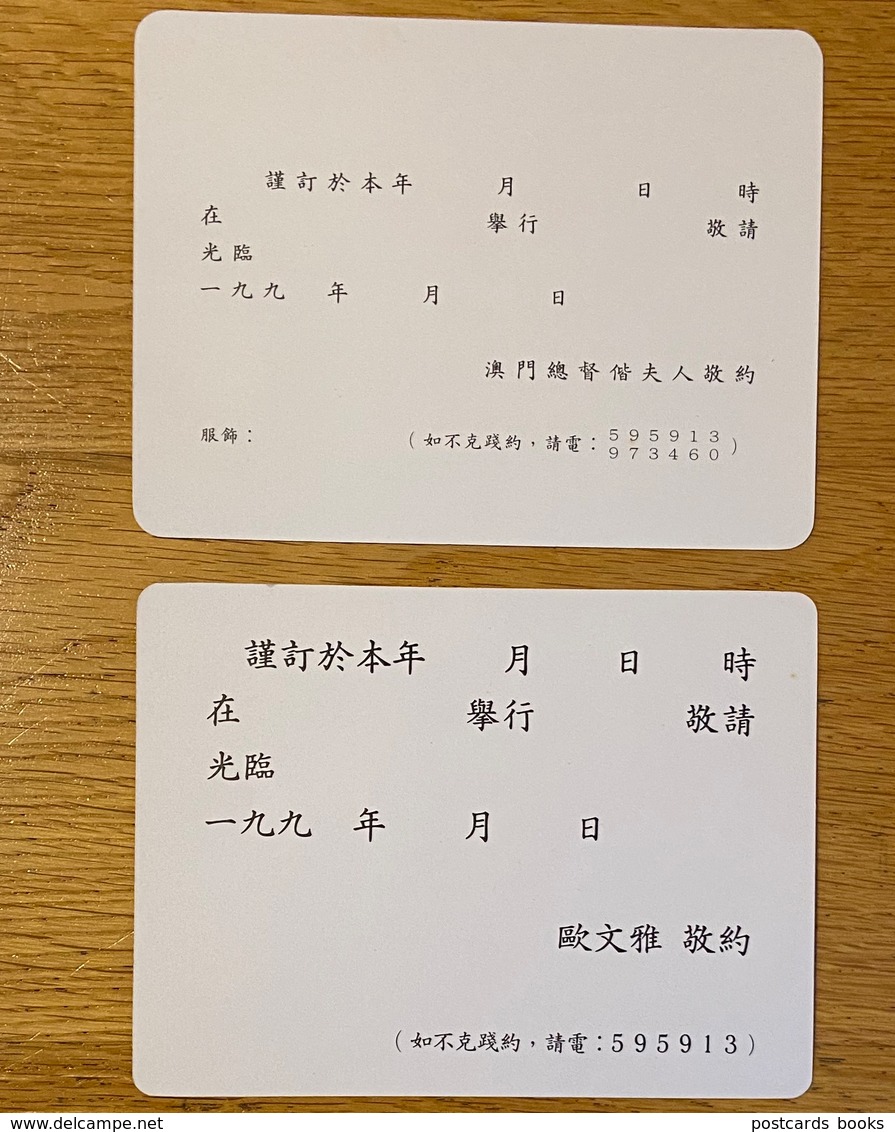 謹訂於本年 月 日 時
在 舉行 敬請
光臨
一九九 年 月 日
澳門總督偕夫人敬約
服飾： （如不克踐約，請電：595913
973460）
謹訂於本年 月 日 時
在 舉行 敬請
光臨
一九九 年 月 日
歐文雅 敬約
（如不克踐約，請電：595913）
www.delcampe.net postcards books